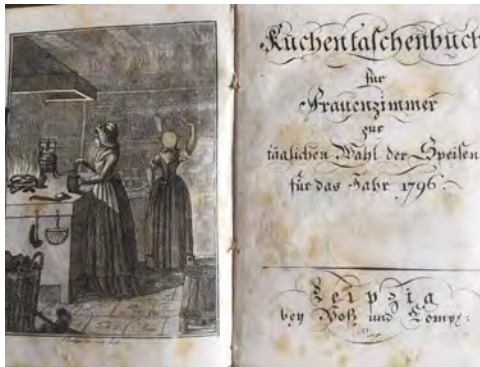 Küchentaschenbuch
für
Frauenzimmer
zur
täglichen Wahl der Speisen
für das Jahr 1796.
Leipzig
bey Voß und Comp: